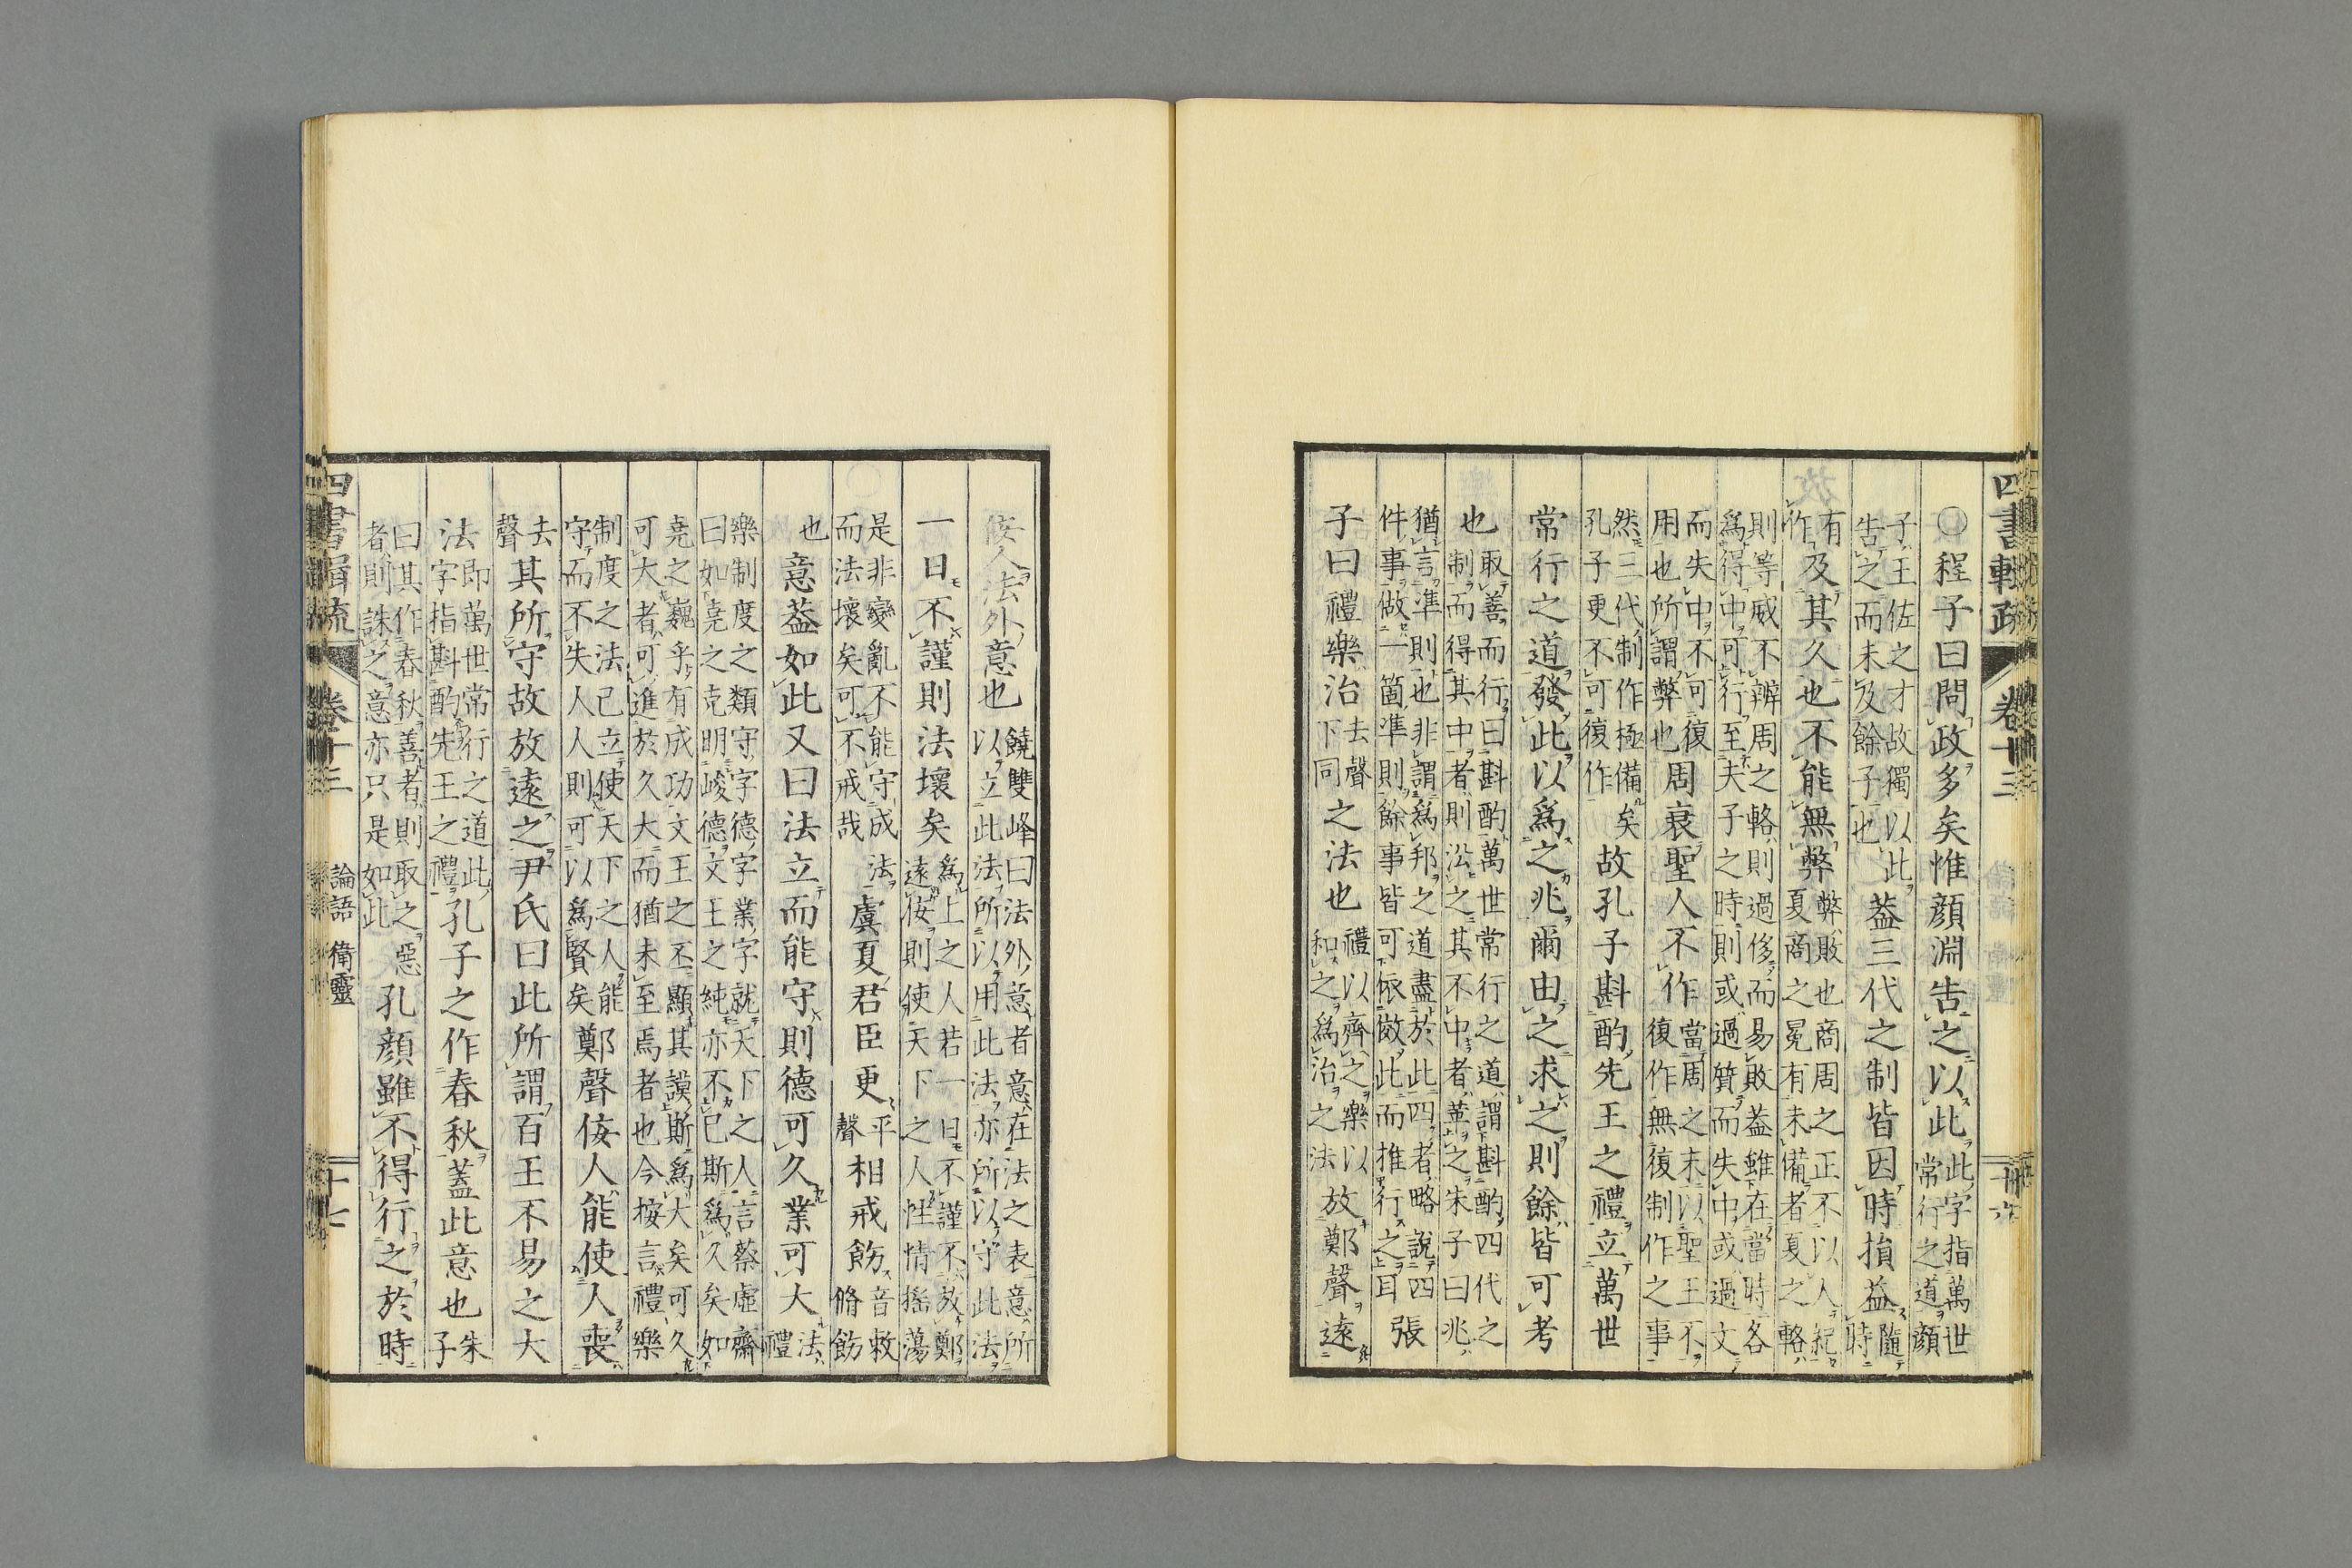 四書輯疏 卷十三
○程子曰問政多矣惟顏淵告之以此此字指萬世常行之道顏
子王佐之才故獨以此告之而未及餘子也蓋三代之制皆因時損益隨時
有作及其久也不能無弊弊敗也商周之正不以人紀夏商之冕有未備者夏之輅
則等威不辨周之輅則過侈而易敗蓋雖在當時各爲得中可行至夫子之時則或過質而失中或過文
而失中不可復用也所謂弊也周衰聖人不作當周之末以聖王不復作無復制作之事
然三代制作極備矣孔子更不可復作故孔子斟酌先王之禮立萬世
常行之道發此以爲之兆爾由之求之則餘皆可考
也取善而行曰斟酌萬世常行之道謂斟酌四代之制而得其中者則㳂之其不中者革之朱子曰兆
猶言準則也非謂爲邦之道盡於此四者略說四件事做一箇準則餘事皆可依倣此而推行之耳張
子曰禮樂治去聲下同之法也禮以齊之樂以和之爲治之法放鄭聲遠
佞人法外意也饒雙峰曰法外意者意在法之表意所以立此法所以用此法亦所以守此法
一日不謹則法壞矣爲上之人若一日不謹不放鄭遠佞則使天下之人性情搖蕩
是非變亂不能守成法而法壞矣可不戒哉虞夏君臣更平聲相戒飭音敕脩飭
也意蓋如此又曰法立而能守則德可久業可大法禮
樂制度之類守字德字業字就天下之人言蔡虛齋曰如堯之克明峻德文王之純亦不已斯爲久矣如
堯之巍乎有成功文王之丕顯其謨斯爲大矣可久可大者可進於久大而猶未至焉者也今按言禮樂
制度之法已立使天下之人能守而不失人人則可以爲賢矣鄭聲佞人能使人喪
去聲其所守故放遠之尹氏曰此所謂百王不易之大
法即萬世常行之道此法字指斟酌先王之禮孔子之作春秋蓋此意也朱子
曰其作春秋善者則取之惡者則誅之意亦只是如此孔顏雖不得行之於時
四書輯疏 卷十三 論語 衛靈 十七